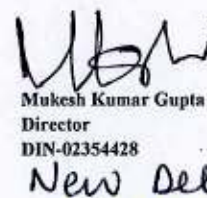 Mukesh Kumar Gupta
Director
DIN-02354428
New